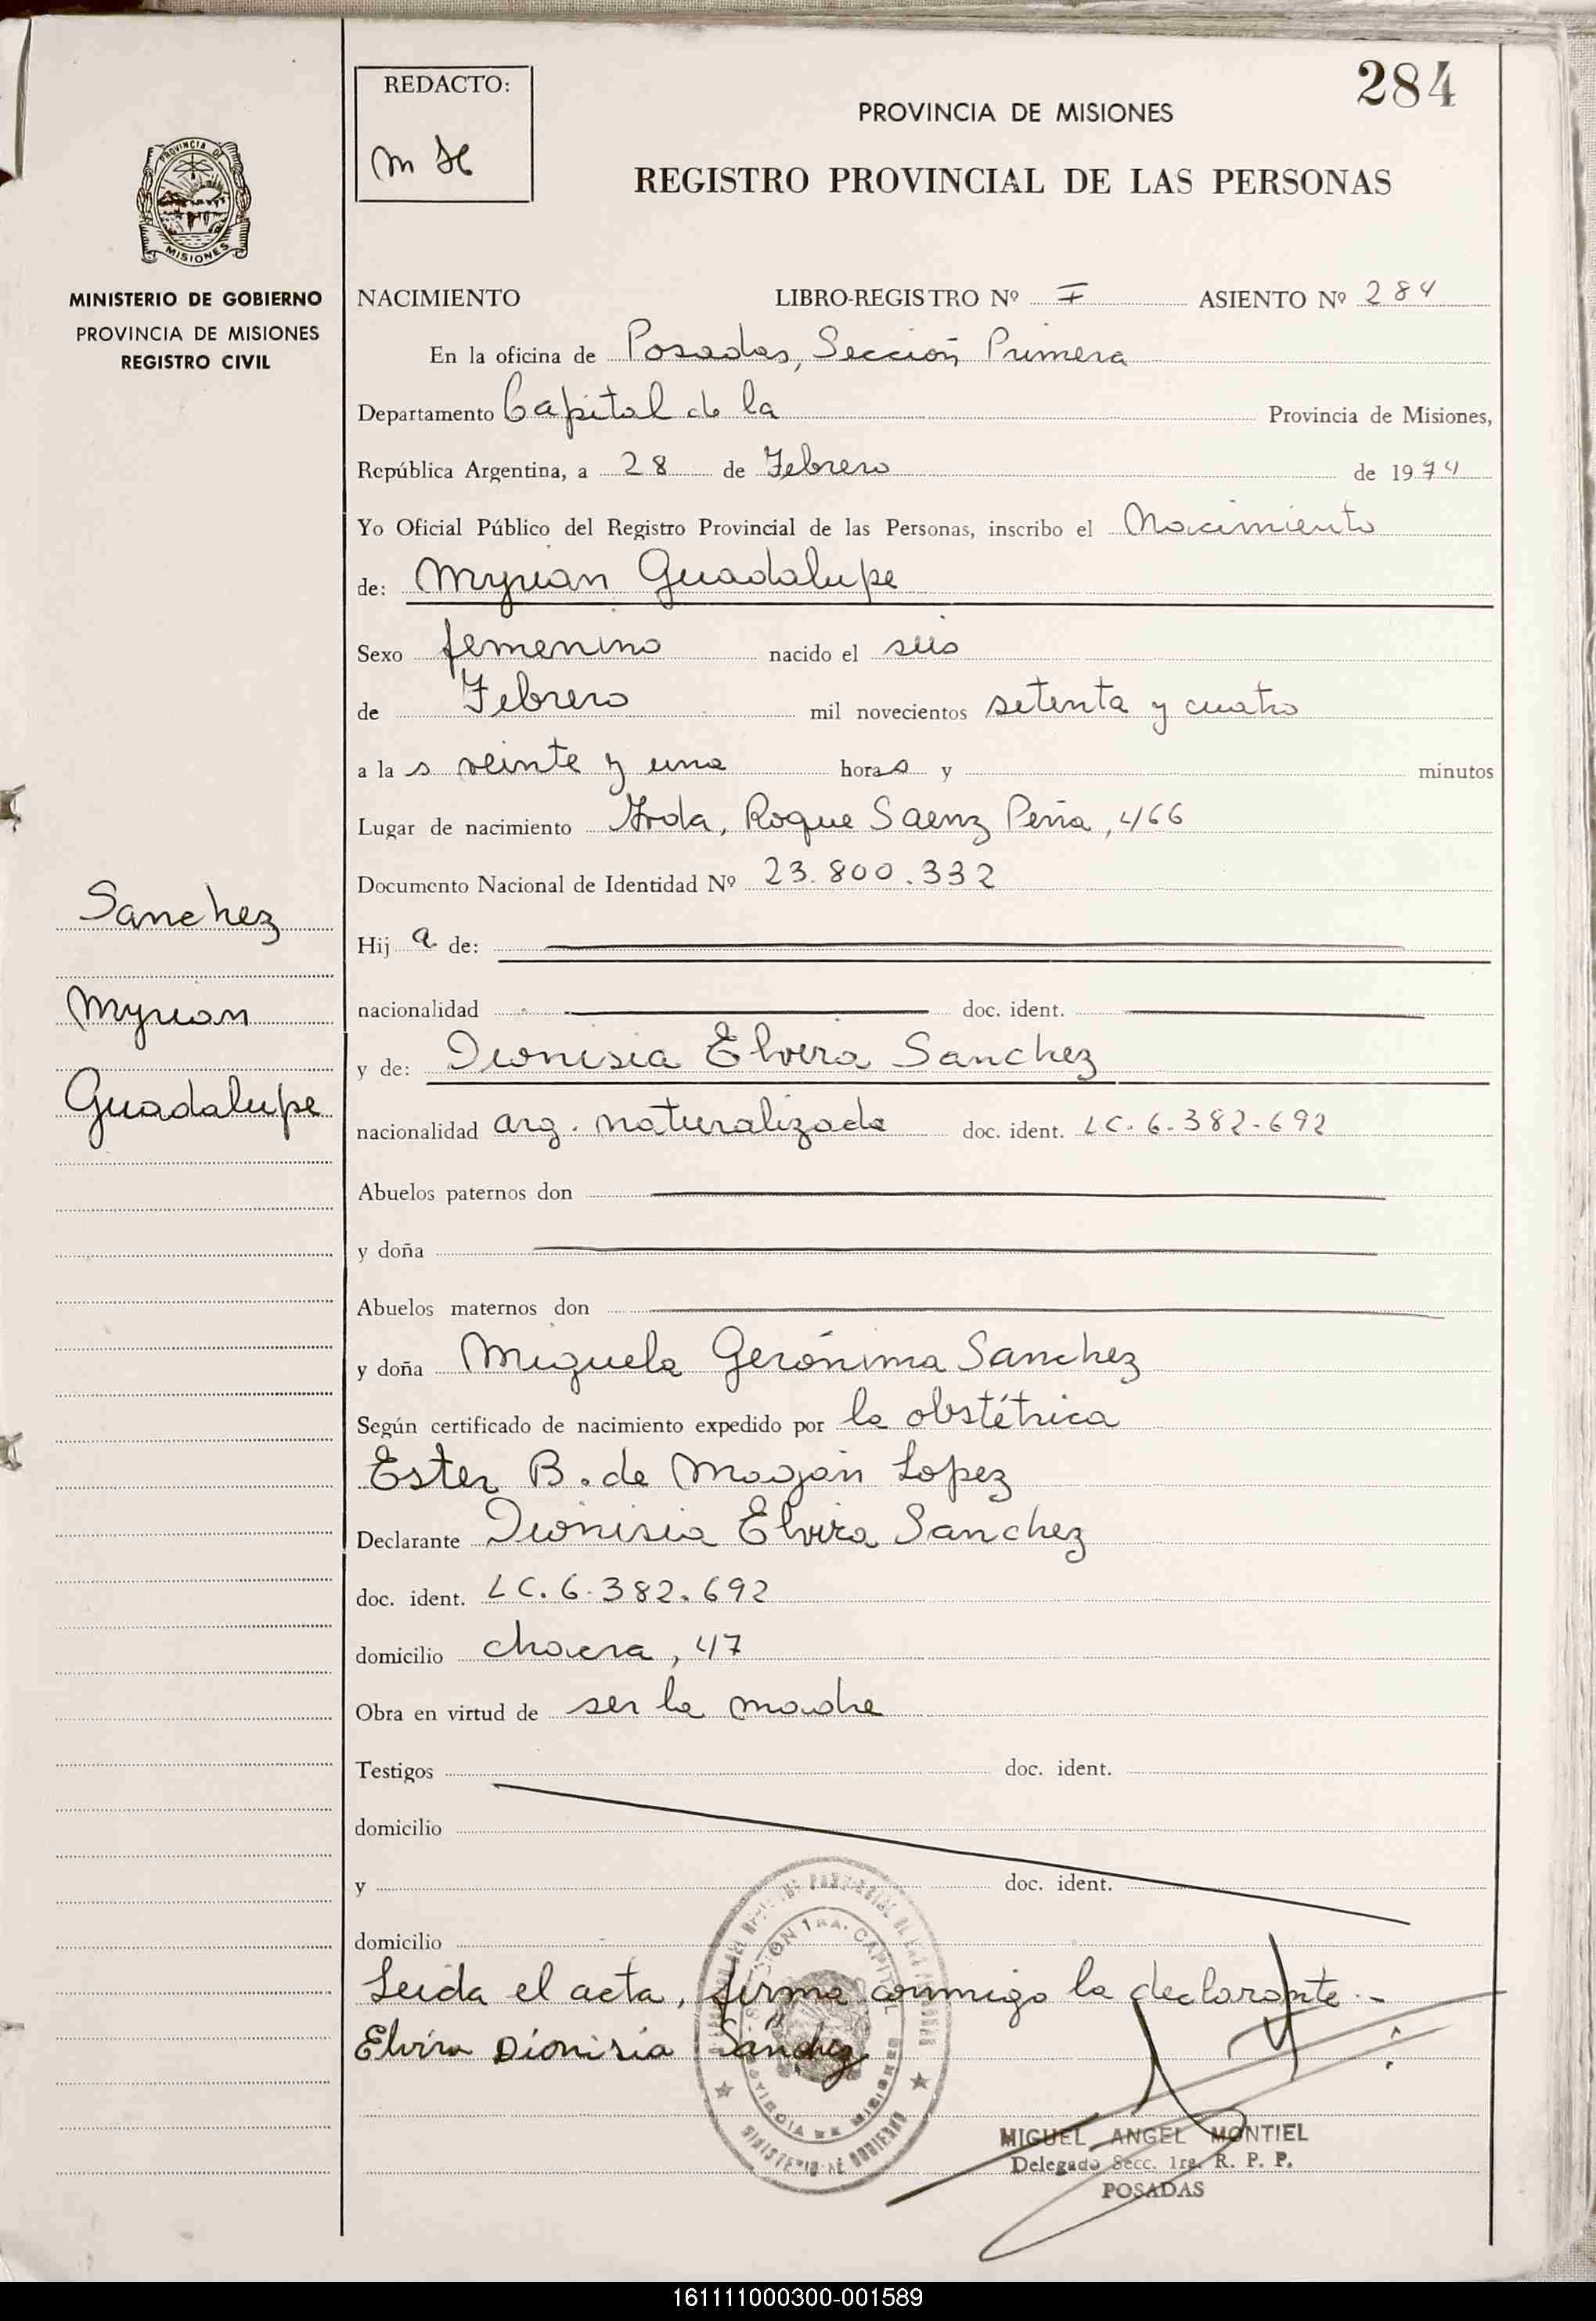 284
REDACTO:
m H
PROVINCIA DE MISIONES
REGISTRO PROVINCIAL DE LAS PERSONAS
PROVINCIA DE
MISIONES
MINISTERIO DE GOBIERNO
PROVINCIA DE MISIONES
REGISTRO CIVIL
Sanchez
Myrian
Guadalupe
NACIMIENTO LIBRO-REGISTRO Nº I ASIENTO Nº 284
En la oficina de Posadas, Sección Primera
Departamento Capital de la Provincia de Misiones,
República Argentina, a 28 de Febrero de 1974
Yo Oficial Público del Registro Provincial de las Personas, inscribo el Nacimiento
de: Myrian Guadalupe
Sexo femenino nacido el seis
de Febrero mil novecientos setenta y cuatro
a la s veinte y una hora s y minutos
Lugar de nacimiento Avda, Roque Saenz Peña, 466
Documento Nacional de Identidad Nº 23.800.332
Hij a de:
nacionalidad doc. ident.
y de: Dionisia Elvira Sanchez
nacionalidad arg. naturalizada doc. ident. LC. 6.382-692
Abuelos paternos don
y doña
Abuelos maternos don
y doña Miguela Gerónima Sanchez
Según certificado de nacimiento expedido por la obstétrica
Ester B. de Lopez
Declarante Dionisia Elvira Sanchez
doc. ident. LC. 6.382.692
domicilio chacra, 47
Obra en virtud de ser la madre
Testigos doc. ident.
domicilio
y doc. ident.
domicilio
Leida el acta, firma conmigo la declarante.-
Elvira Dionisia Sanchez
SECCION 1RA. CAPITAL
PROVINCIA DE MISIONES
MINISTERIO DE GOBIERNO
MIGUEL ANGEL MONTIEL
Delegado Secc. 1ra. R. P. P.
POSADAS
161111000300-001589